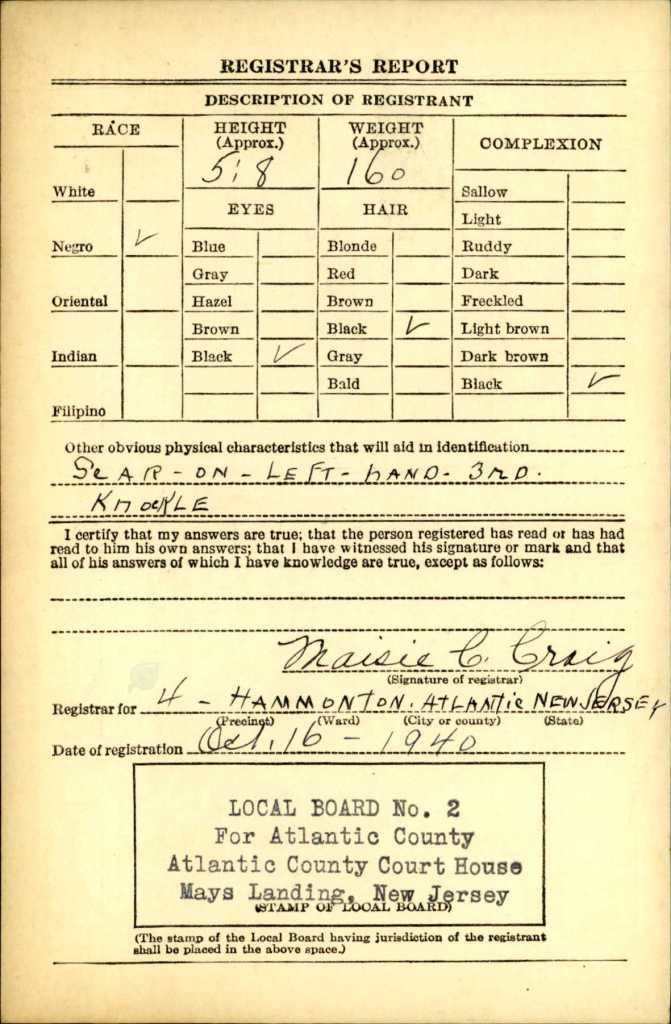 REGISTRAR'S REPORT
DESCRIPTION OF REGISTRANT
RACE
HEIGHT
(Approx.)
WEIGHT
(Approx.)
COMPLEXION
5:8
160
White
EYES
HAIR
Sallow
Light
Negro ✓
Blue
Blonde
Ruddy
Gray
Red
Dark
Oriental
Hazel
Brown
Freckled
Brown
Black ✓
Light brown
Indian
Black ✓
Gray
Dark brown
Bald
Black ✓
Filipino
Other obvious physical characteristics that will aid in identification
SCAR - ON - LEFT - HAND - 3RD.
KNOCKLE
I certify that my answers are true; that the person registered has read or has had
read to him his own answers; that I have witnessed his signature or mark and that
all of his answers of which I have knowledge are true, except as follows:
Maisie C. Craig
(Signature of registrar)
Registrar for 4 - HAMMONTON. ATLANTIC NEW JERSEY
(Precinct) (Ward) (City or county) (State)
Date of registration Oct. 16 - 1940
LOCAL BOARD No. 2
For Atlantic County
Atlantic County Court House
Mays Landing, New Jersey
(STAMP OF LOCAL BOARD)
(The stamp of the Local Board having jurisdiction of the registrant
shall be placed in the above space.)